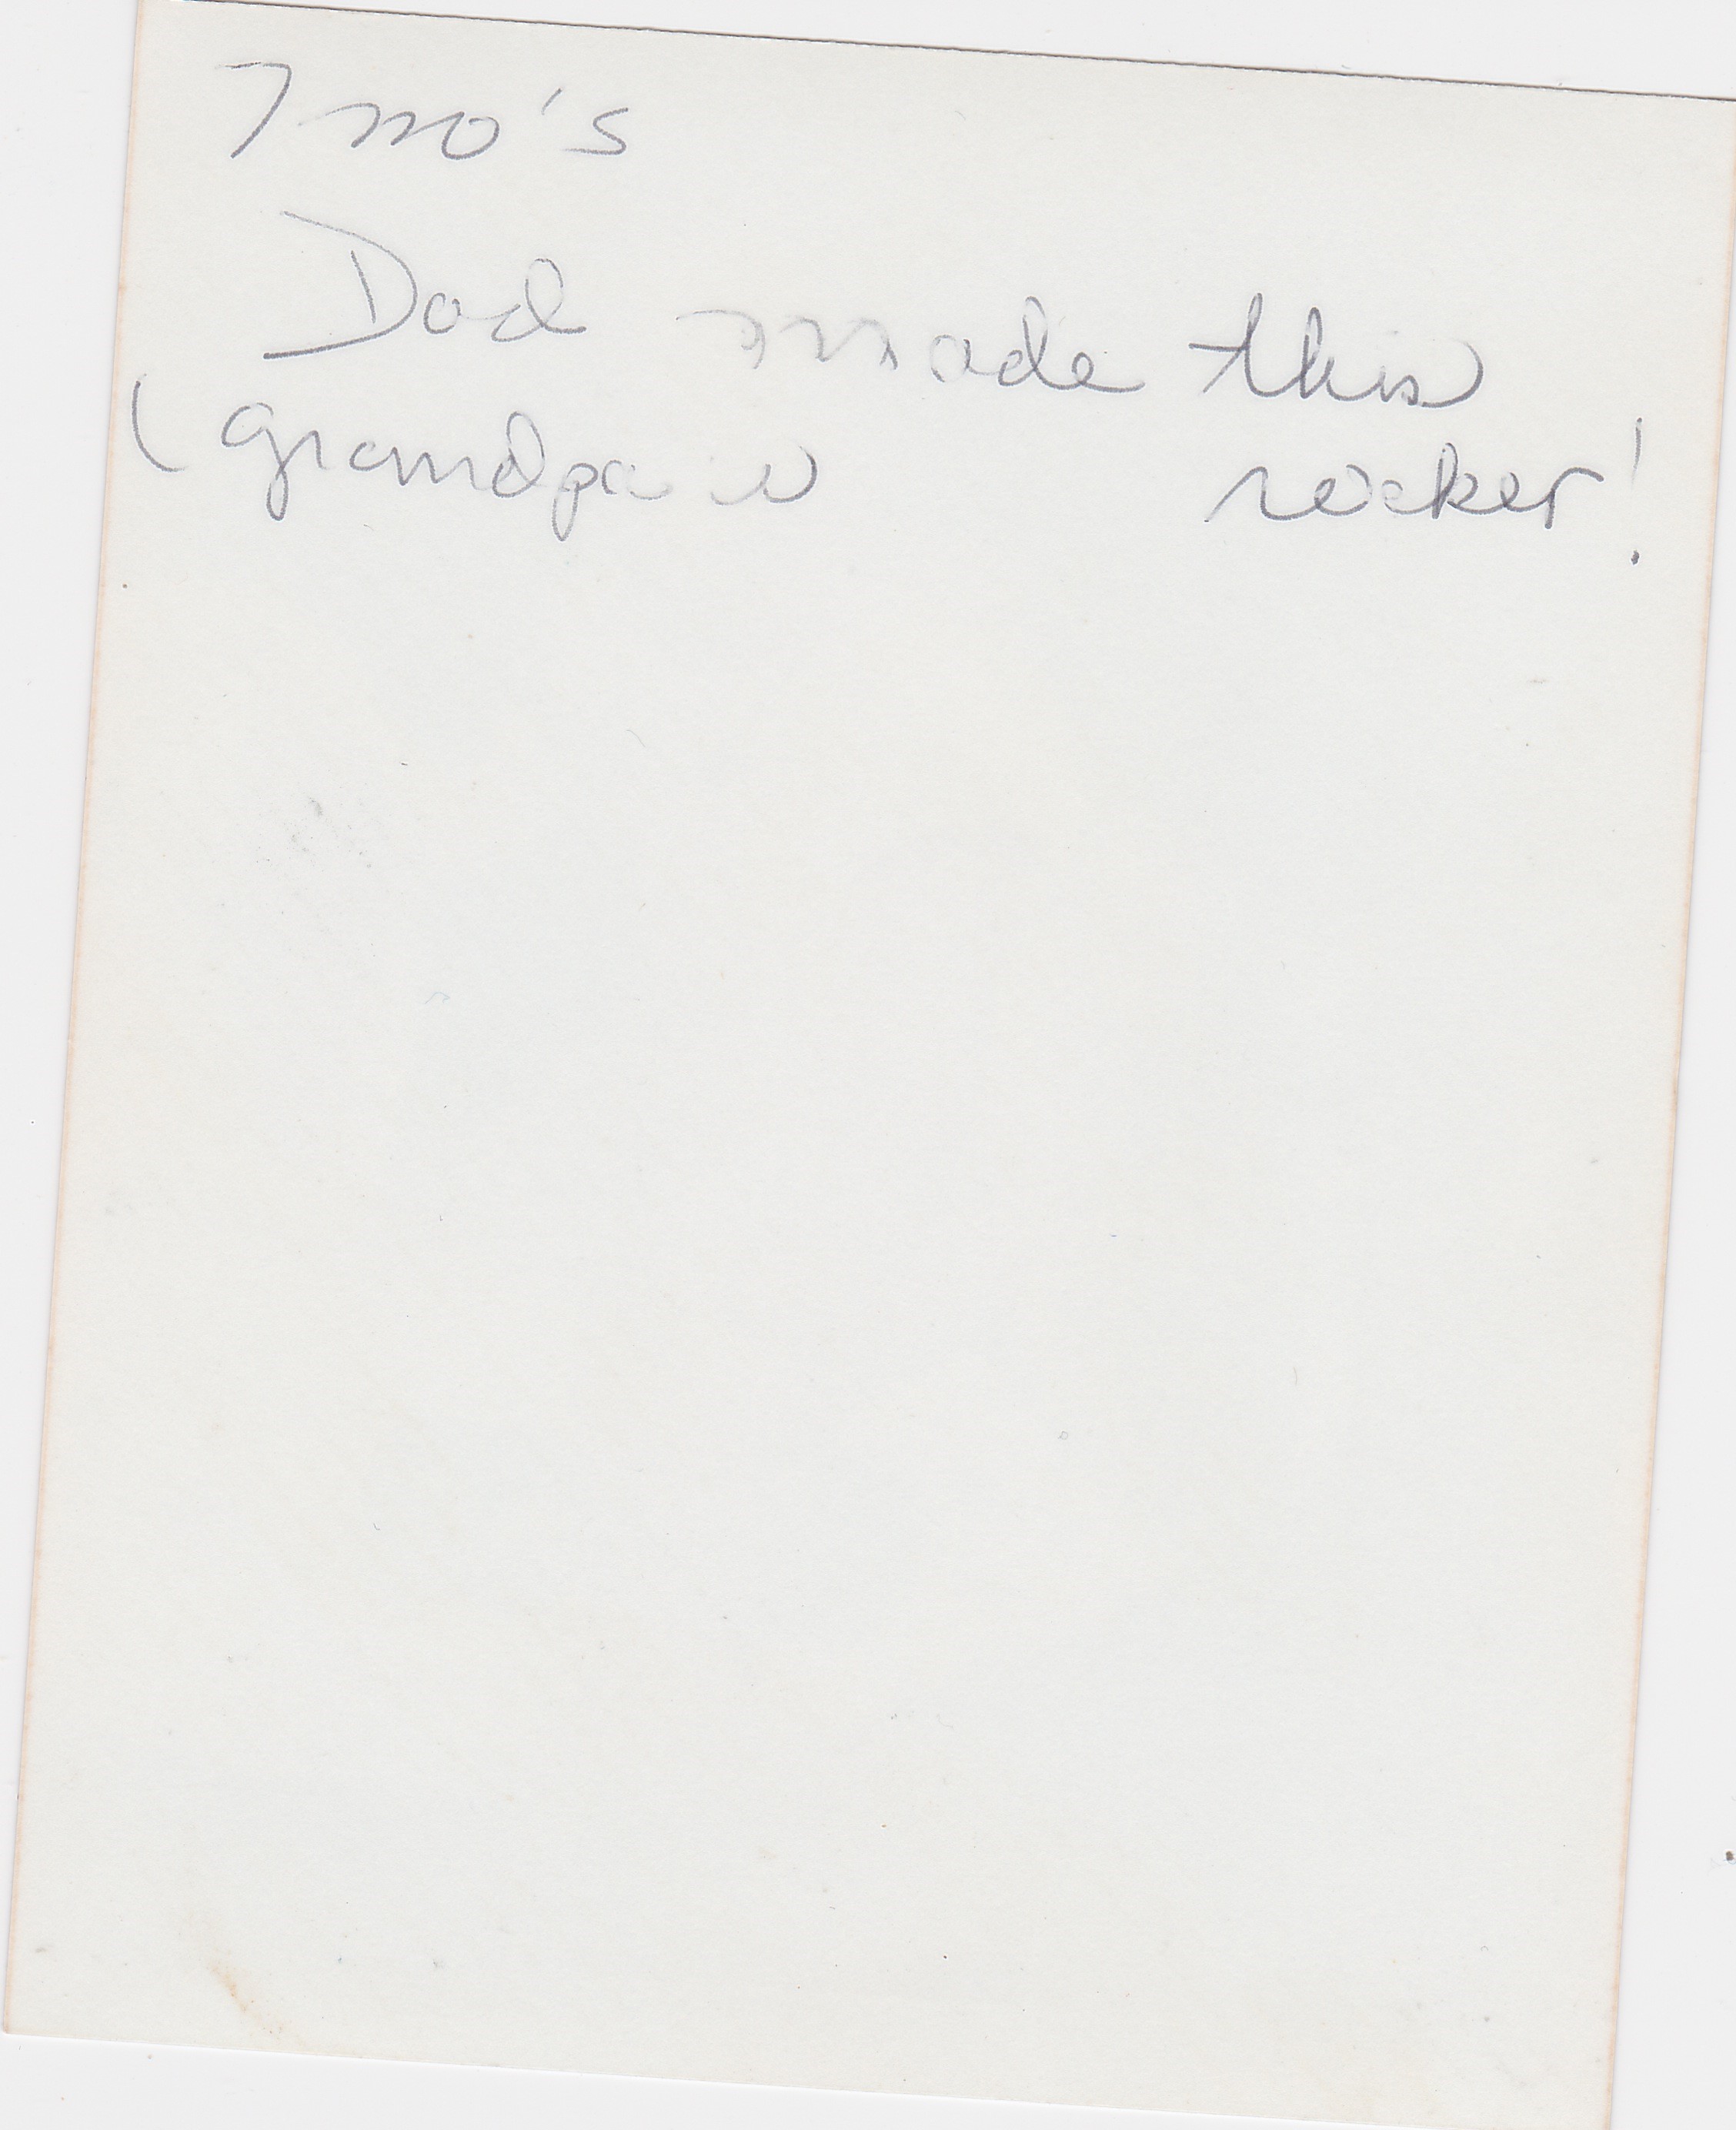 7 mo's
Dad made this
(grandpa ) rocker!